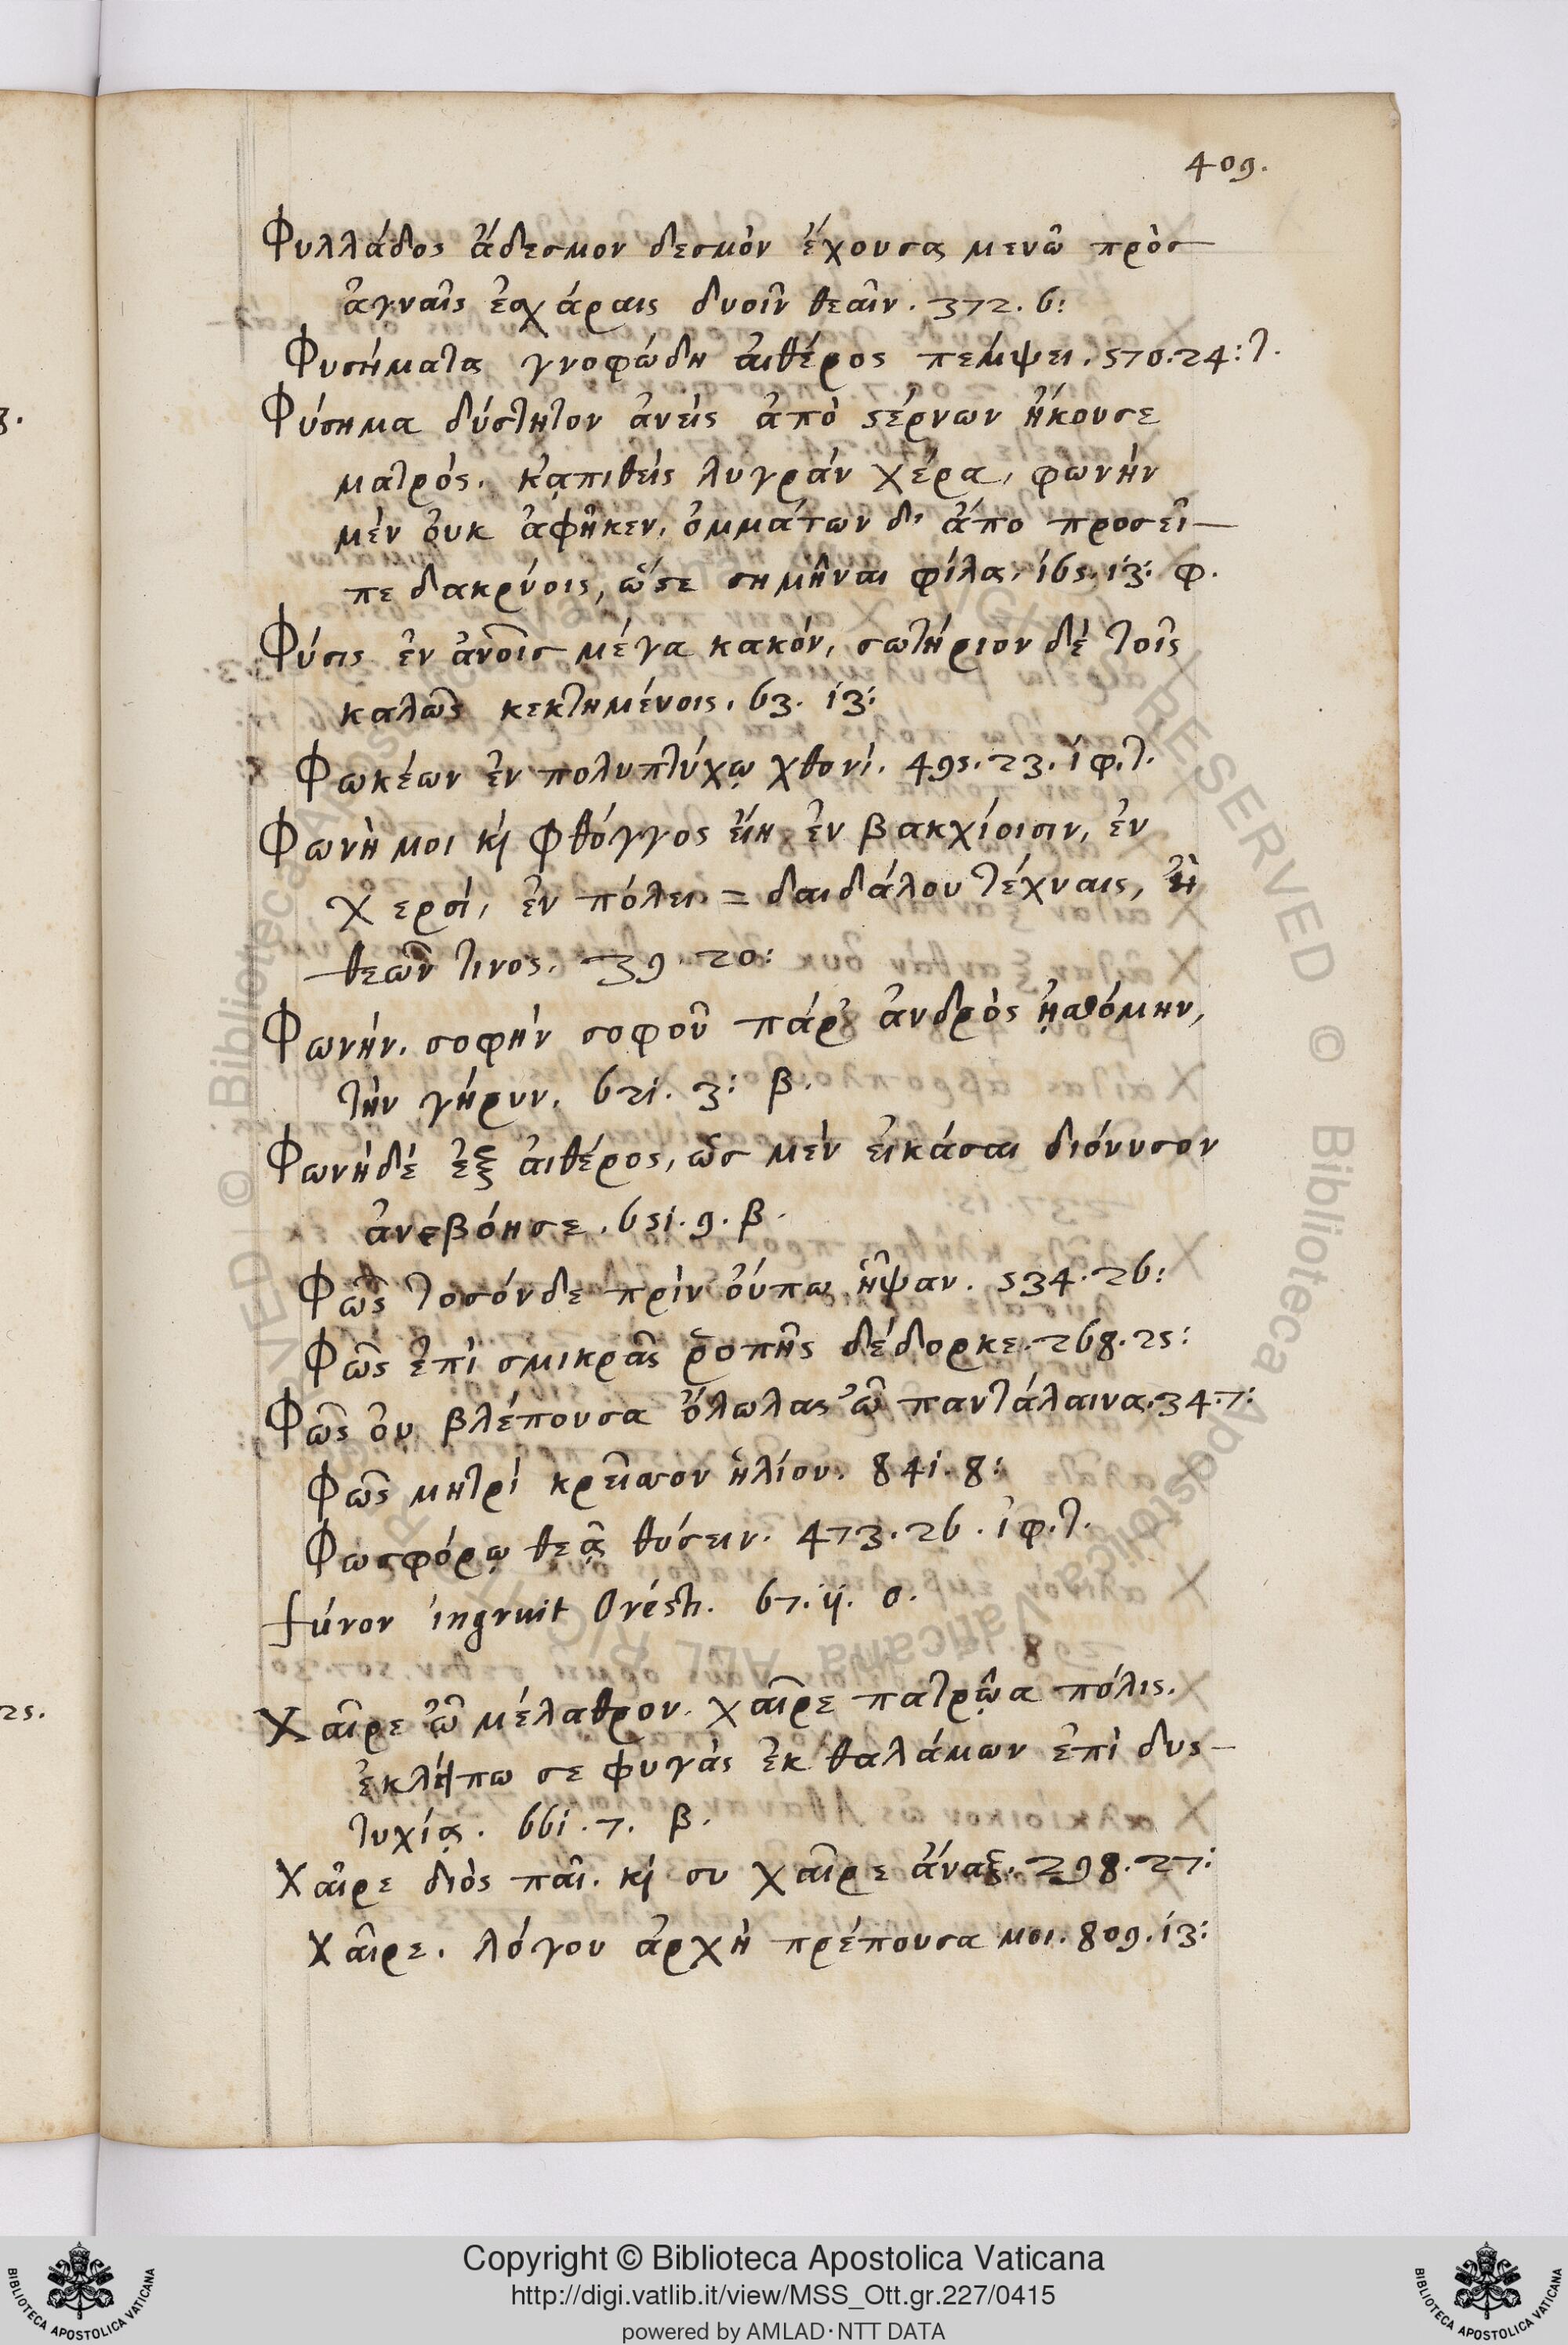 409.
Φυλλάδος ἄδεσμον δεσμὸν ἔχουσα μενῶ πρὸς
ἁγναῖς ἐσχάραις δυοῖν θεαῖν. 372. 6:
Φυσήματα γνοφώδη αἰθέρος πέμψει. 570. 24: τ.
Φύσημα δύστητον ἀνεὶς ἀπὸ ϛέρνων ἤκουσε
ματρός. κᾀπιθεὶς λυγρὰν χέρα, φωνὴν
μὲν οὐκ ἀφῆκεν, ὀμμάτων δ' ἄπο προσεῖ-
πε δακρύοις, ὥϛε σημῆναι φίλα. 165. 13: φ.
Φύσις ἐν ἀνοῖς μέγα κακόν, σωτήριον δὲ τοῖς
καλῶς κεκτημένοις. 63. 13:
Φωκέων ἐν πολυπτύχῳ χθονί. 495. 23. ἰφ. τ.
Φωνὴ μοι κὶ φθόγγος εἴη ἐν βακχίοισιν, ἐν
χερσί, ἐν πόλει = δαιδάλου τέχναις, ἢ
θεῶν τινος. 39. 20:
Φωνήν. σοφὴν σοφοῦ πάρ' ἀνδρὸς ᾐσθόμην,
τὴν γήρυν. 621. 3: β.
Φωνὴ δὲ ἐξ αἰθέρος, ὡς μὲν εἰκάσαι διόνυσον
ἀνεβόησε. 651. 9. β.
Φῶς τοσόνδε πρὶν οὔπω ἧψαν. 534. 26:
Φῶς ἐπὶ σμικρᾶς ῥοπῆς δέδορκε. 268. 25:
Φῶς οὐ βλέπουσα ὄλωλας ὦ παντάλαινα. 34. 7:
Φῶς μητρὶ κρεῖσσον ἡλίου. 841. 8:
Φωσφόρῳ θεᾷ θύσειν. 473. 26. ἰφ. τ.
furor ingruit Oresti. 67. ii. ο.
Χαῖρε ὦ μέλαθρον. χαῖρε πατρῷα πόλις.
ἐκλείπω σε φυγὰς ἐκ θαλάμων ἐπὶ δυς-
τυχίᾳ. 661. 7. β.
Χαῖρε διὸς παῖ. κὶ συ χαῖρε ἄναξ. 298. 27:
Χαῖρε. λόγου ἀρχὴ πρέπουσα μοι. 809. 13:
25.
Copyright © Biblioteca Apostolica Vaticana
http://digi.vatlib.it/view/MSS_Ott.gr.227/0415
powered by AMLAD·NTT DATA
BIBLIOTECA APOSTOLICA VATICANA
BIBLIOTECA APOSTOLICA VATICANA